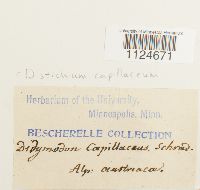 1124671
Distichium capillaceum
Herbarium of the University,
Minneapolis, Minn.
BESCHERELLE COLLECTION
Didymodon Capillaceus. Schrad.
Alp. austriacae.